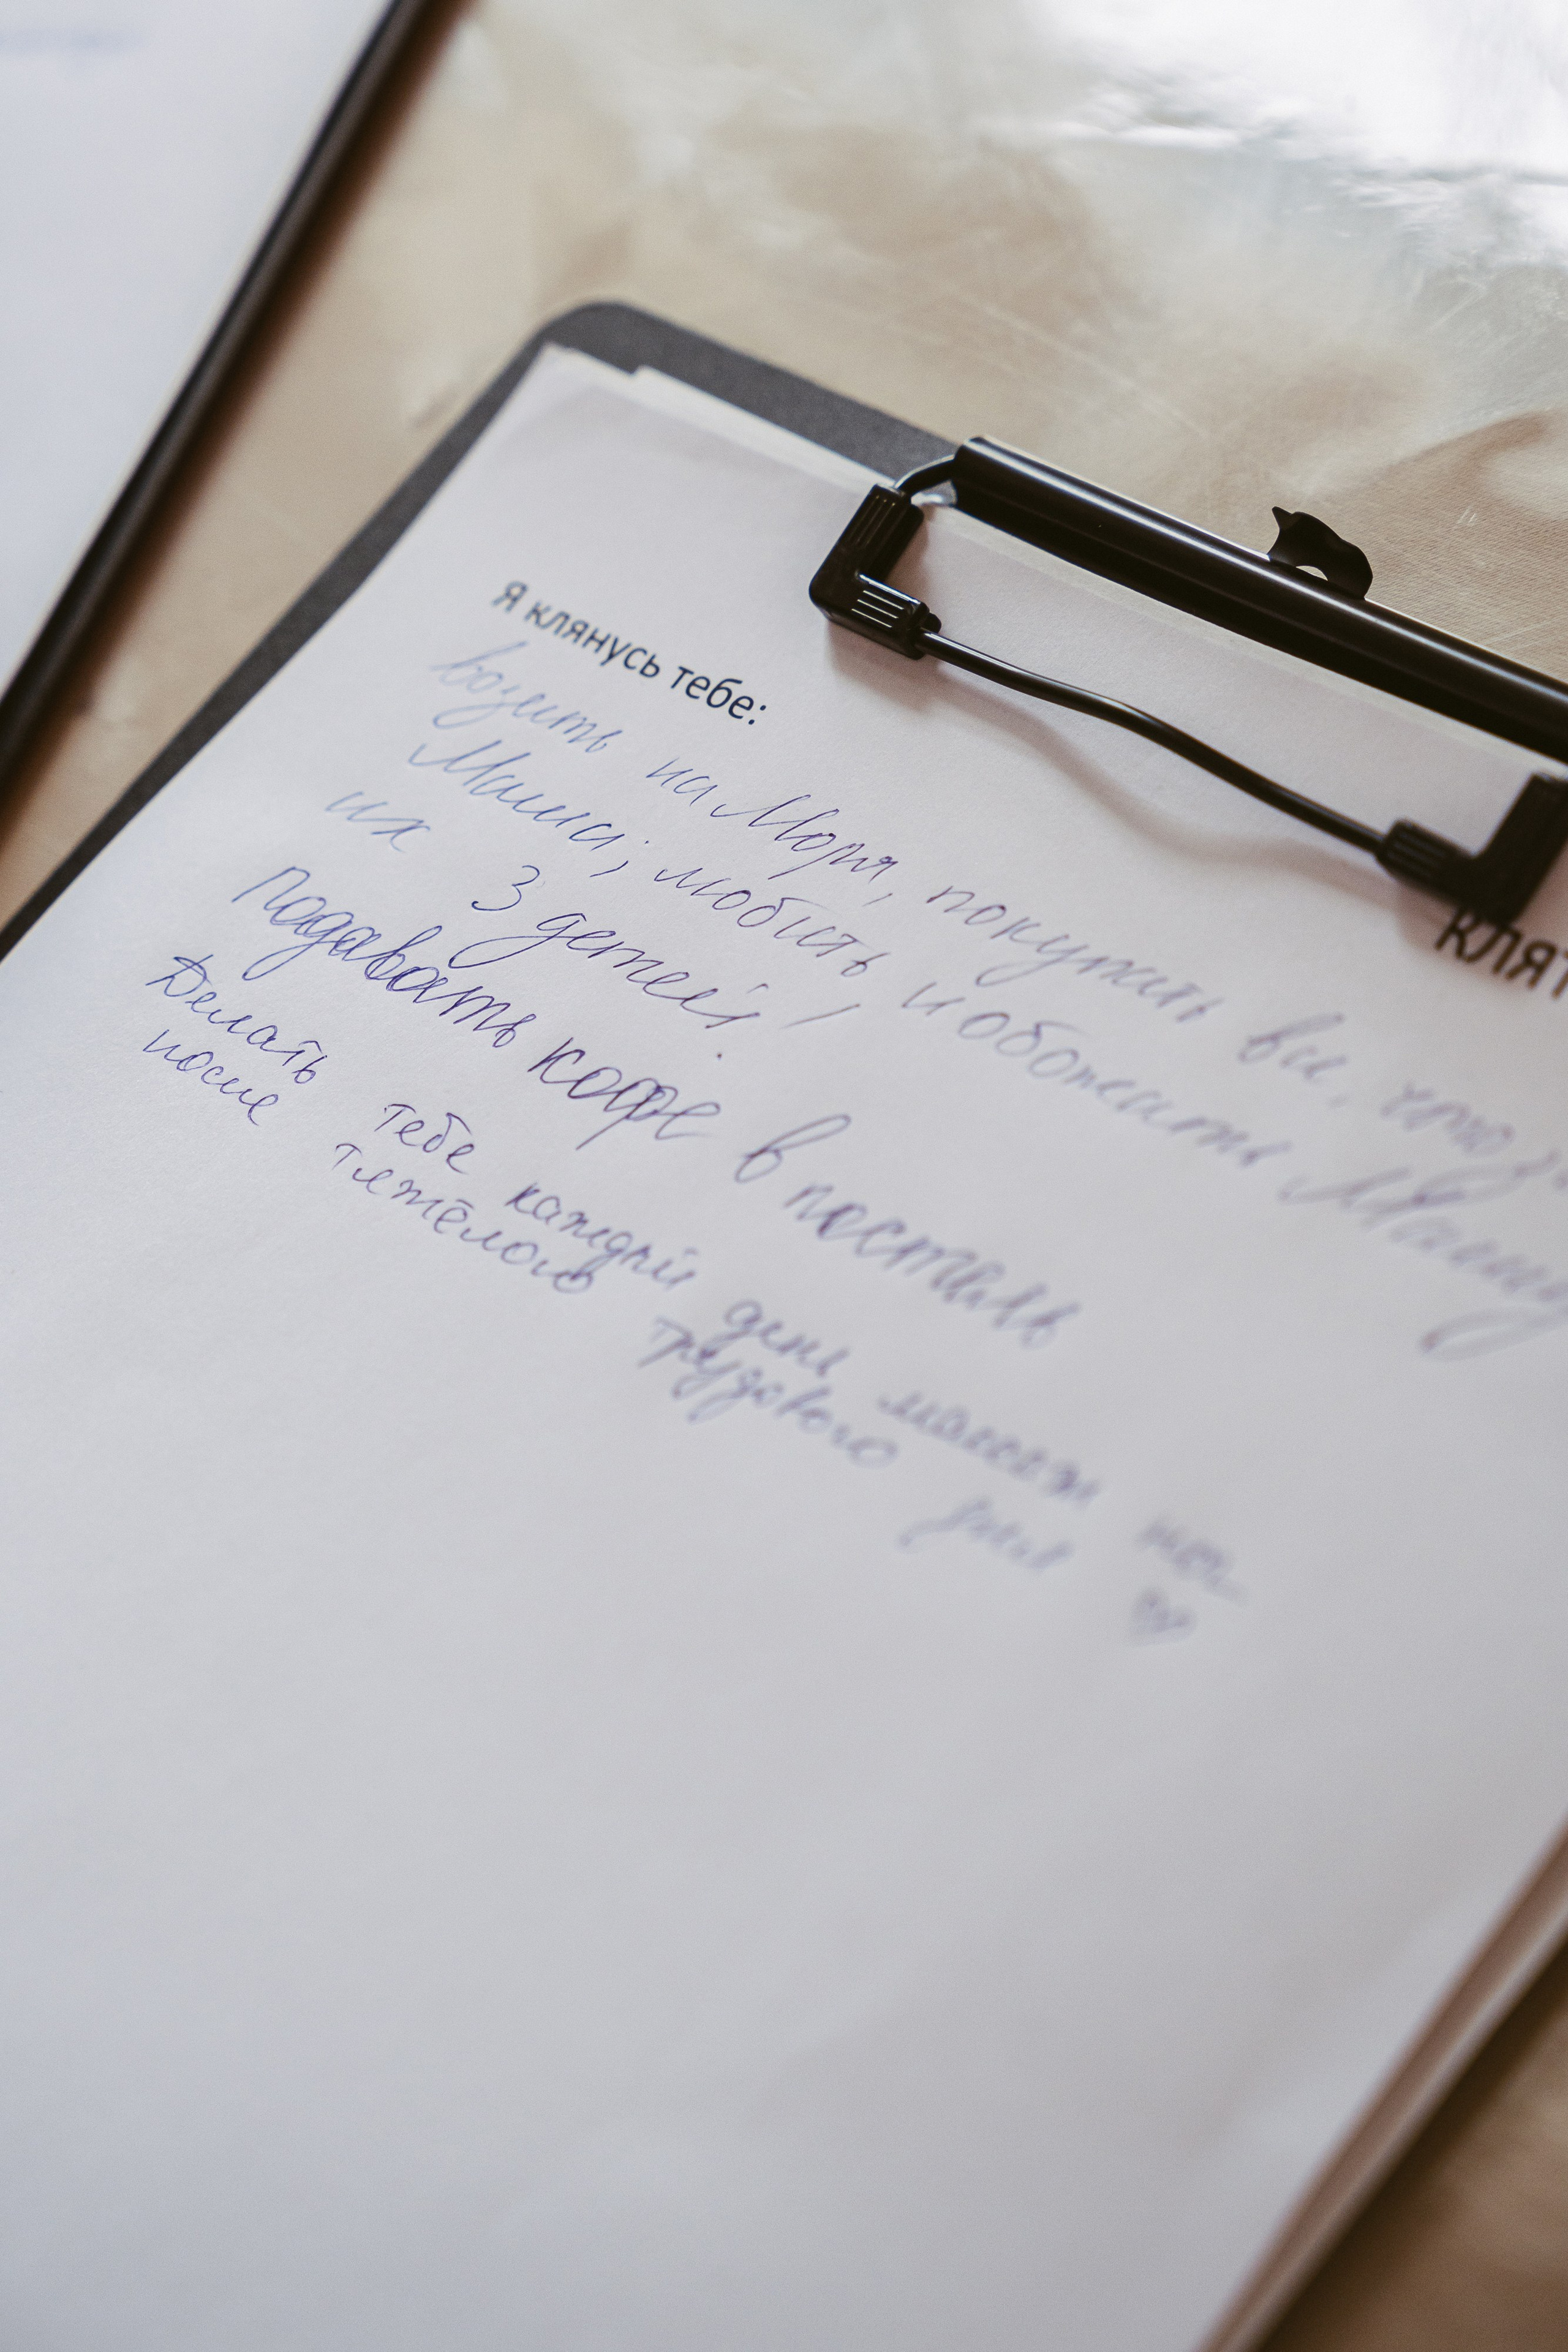 КЛЯТ
Я клянусь тебе:
возить на Моря, покупать все, что
Маша; любить и обожать Машу
их 3 детей!
Подавать кофе в постель
Делать тебе каждый день массаж ног
после тяжёлого трудового дня